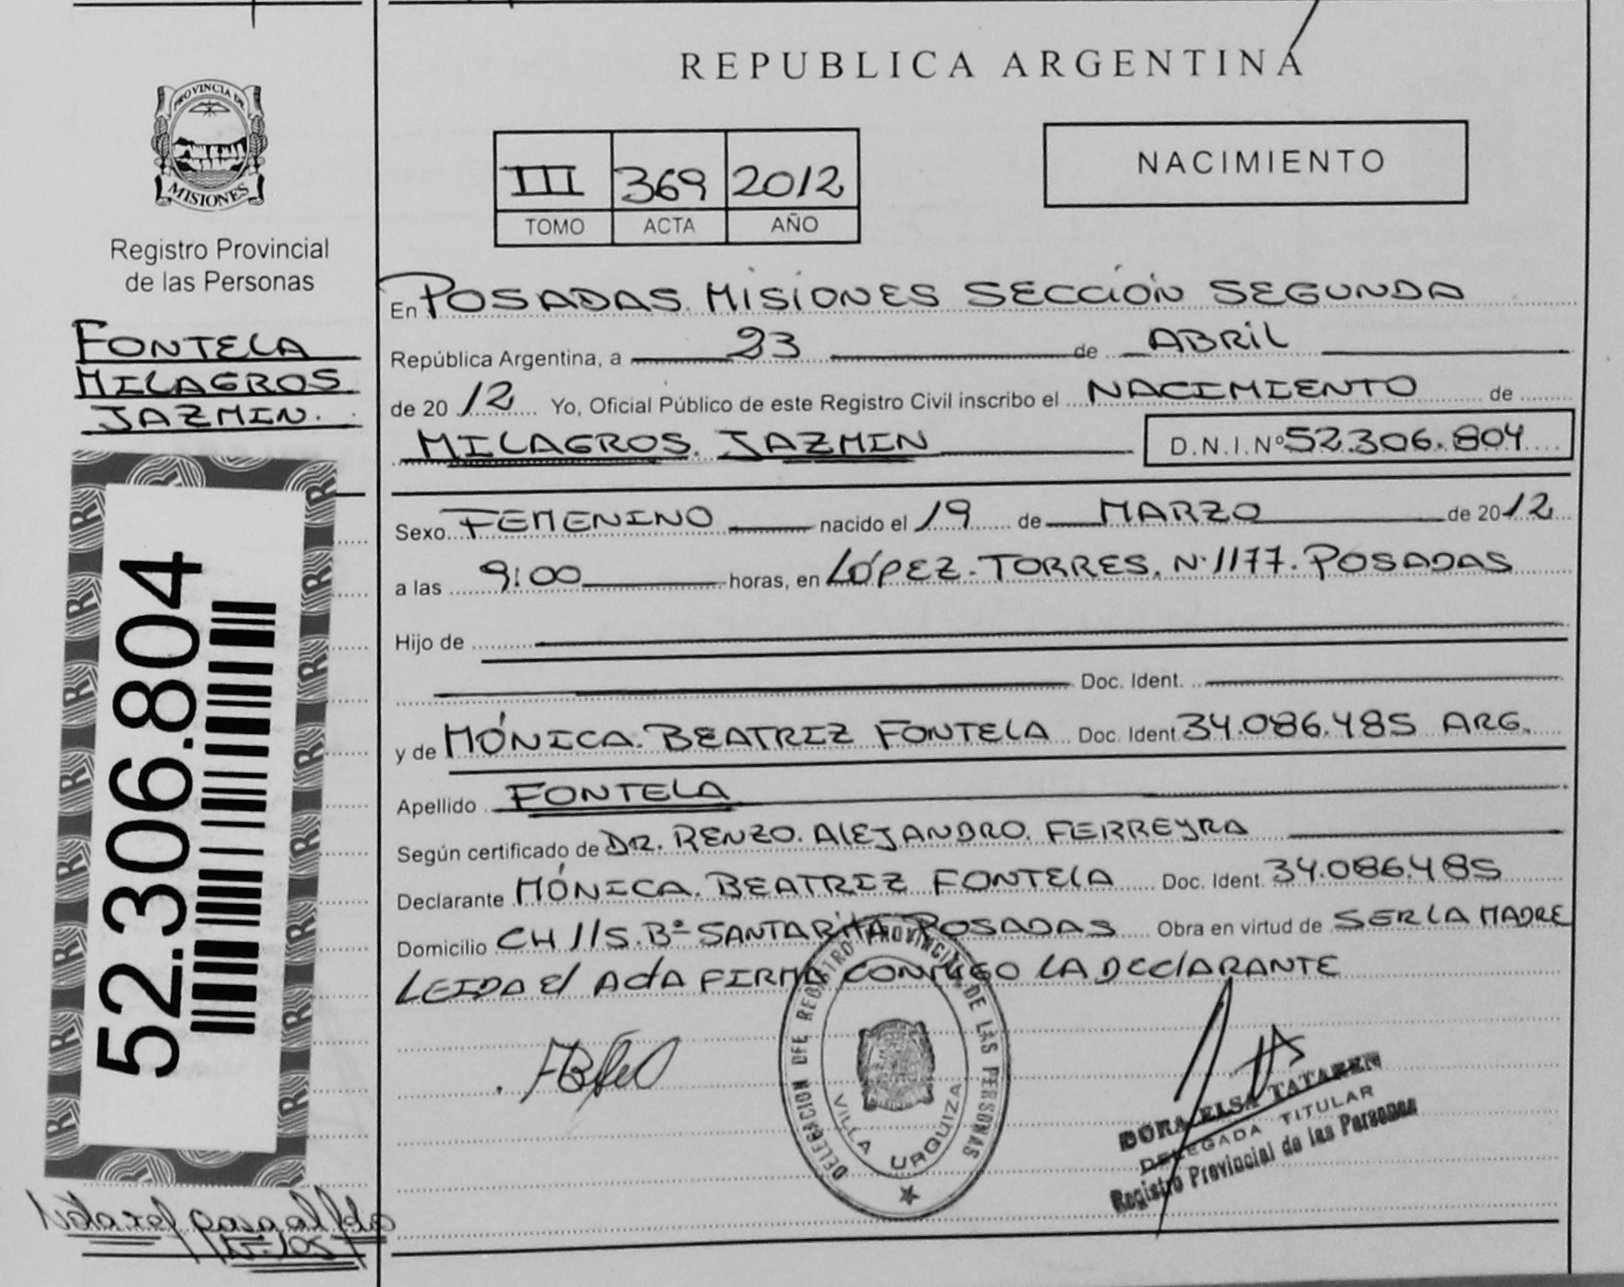 REPUBLICA ARGENTINA
PROVINCIA DE
MISIONES
Registro Provincial
de las Personas
FONTELA
MILAGROS
JAZMIN.
52.306.804
III 369 2012
TOMO ACTA AÑO
NACIMIENTO
En POSADAS. MISIONES SECCIÓN SEGUNDA
República Argentina, a 23 de ABRIL
de 20 12 Yo, Oficial Público de este Registro Civil inscribo el NACIMIENTO de
MILAGROS. JAZMIN D.N.I.Nº 52.306.804
Sexo FEMENINO nacido el 19 de MARZO de 2012
a las 9:00 horas, en LÓPEZ. TORRES. Nº 1177. POSADAS
Hijo de
Doc. Ident.
y de MÓNICA. BEATRIZ FONTELA Doc. Ident. 34.086.485 ARG.
Apellido FONTELA
Según certificado de DR. RENZO. ALEJANDRO. FERREYRA
Declarante MÓNICA. BEATRIZ FONTELA Doc. Ident. 34.086.485
Domicilio CH 115. Bº SANTA RITA POSADAS Obra en virtud de SER LA MADRE
LEIDA El ActA FIRMA CONMIGO LA DEClARANTE
DELEGACION DEL REGISTRO PROVINCIAL DE LAS PERSONAS
VILLA URQUIZA
DORA ELSA TATAREN
DELEGADA TITULAR
Registro Provincial de las Personas